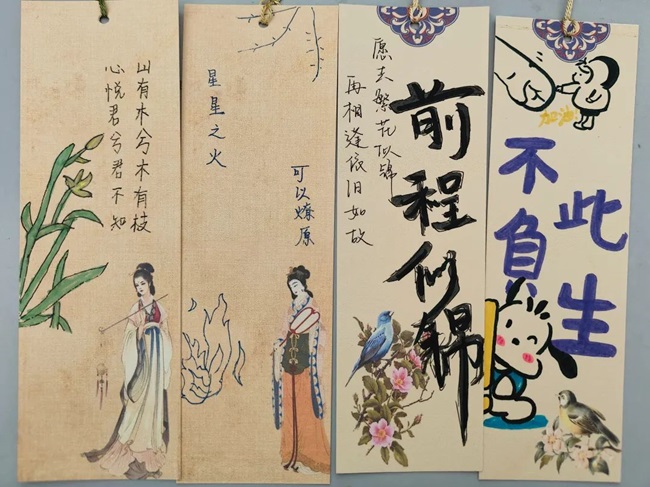 山有木兮木有枝
心悦君兮君不知
星星之火
可以燎原
愿夫繁花似锦
再相逢依旧如故
前程似錦
加油
不負
此生